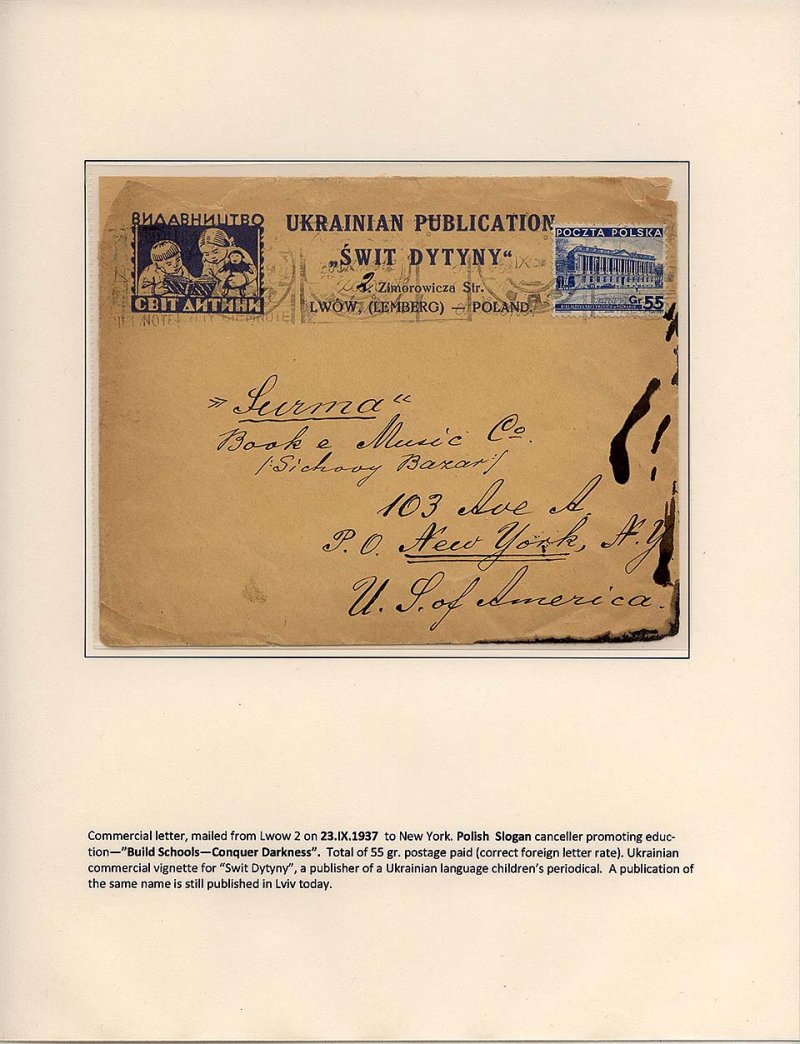 ВИДАВНИЦТВО
СВІТ ДИТИНИ
UKRAINIAN PUBLICATION
„ŚWIT DYTYNY“
2 Zimorowicza Str.
LWÓW, (LEMBERG) — POLAND.
POCZTA POLSKA
Gr. 55
» Surma “
Book e Music Co.
/:Sichovy Bazar:/
103 Ave A.
P. O. New York, N. Y
U. S. of America.
Commercial letter, mailed from Lwow 2 on 23.IX.1937 to New York. Polish Slogan canceller promoting educ-
tion—”Build Schools—Conquer Darkness”. Total of 55 gr. postage paid (correct foreign letter rate). Ukrainian
commercial vignette for “Swit Dytyny”, a publisher of a Ukrainian language children’s periodical. A publication of
the same name is still published in Lviv today.